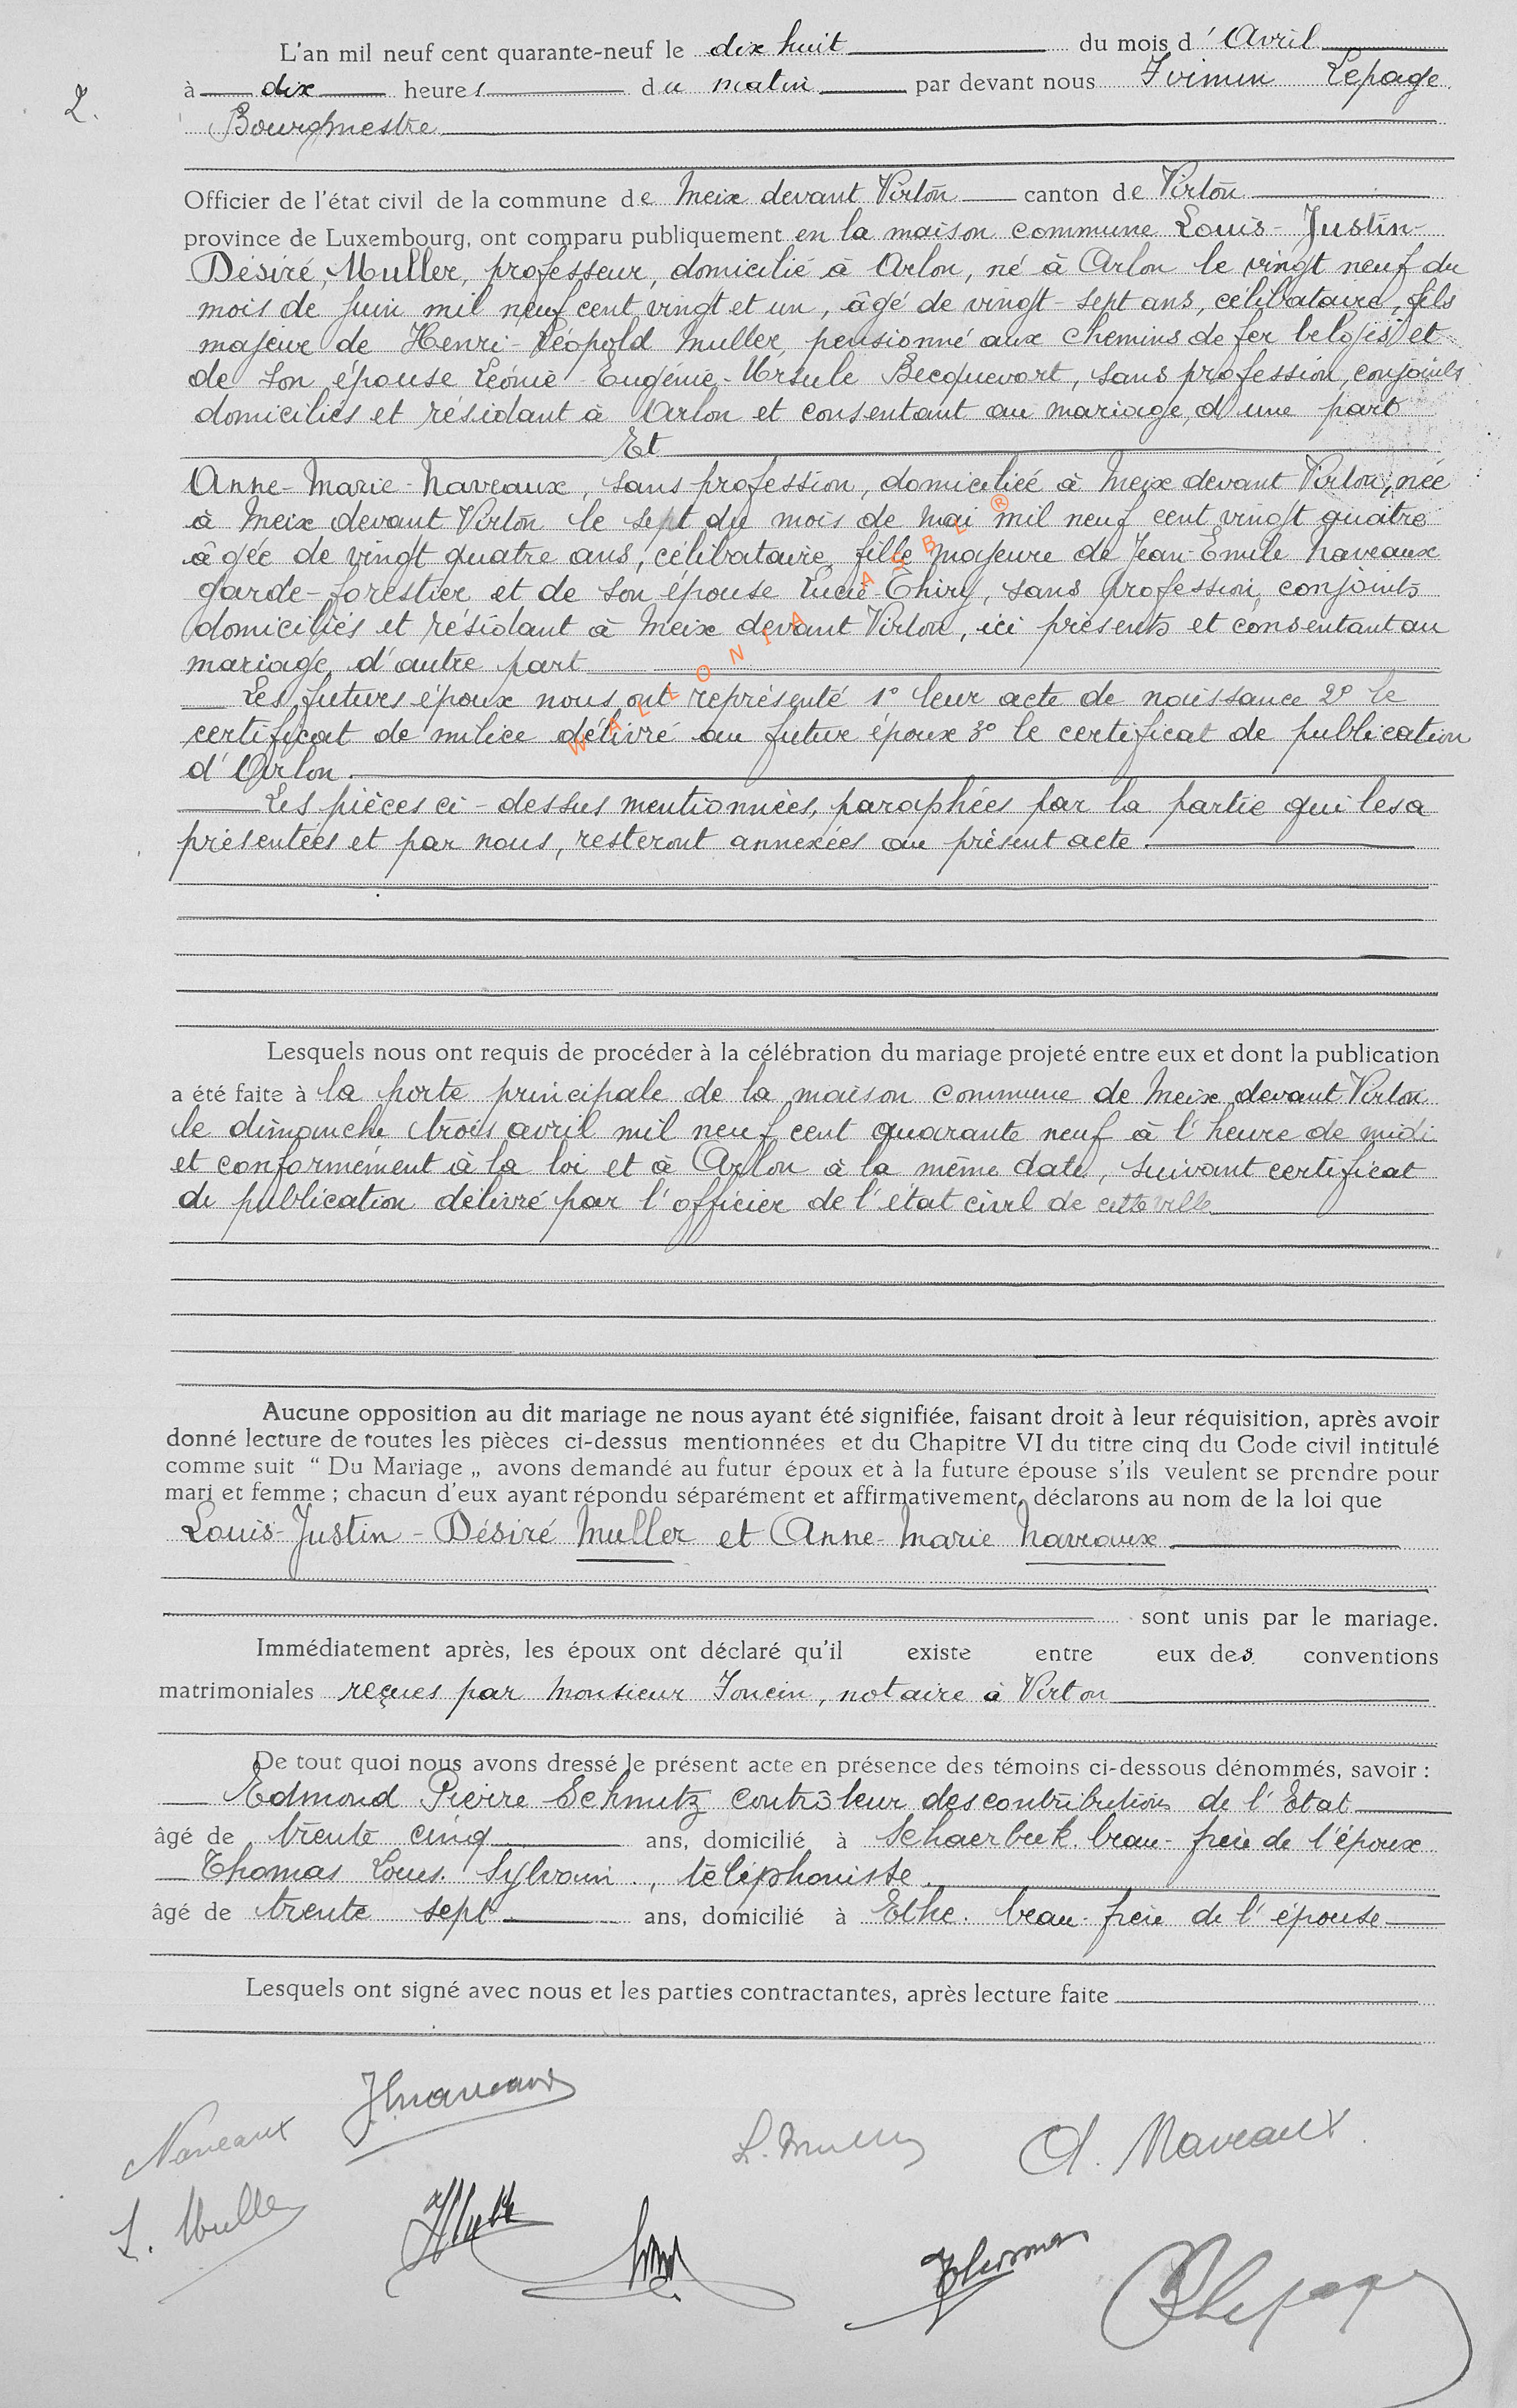 L'an mil neuf cent quarante-neuf le dix huit du mois d'Avril
à dix heures du matin par devant nous Lepage
2.
Bourgmestre
Officier de l'état civil de la commune de Meix devant Virton canton de Virton
province de Luxembourg, ont comparu publiquement en la maison commune Louis-Justin-
Désiré, Muller, professeur, domicilié à Arlon, né à Arlon le vingt neuf du
mois de juin mil neuf cent vingt et un, âgé de vingt-sept ans, célibataire, fils
majeur de Henri-Léopold Muller, pensionné aux chemins de fer belges et
de son épouse Léonie-Eugénie-Ursule Becquevort, sans profession, conjoints
domiciliés et résidant à Arlon et consentant au mariage, d'une part
Et
Anne-Marie-Naveaux, sans profession, domiciliée à Meix devant Virton, née
à Meix devant Virton le sept du mois de mai mil neuf cent vingt quatre
âgée de vingt quatre ans, célibataire, fille majeure de Jean-Emile Naveaux
garde-forestier et de son épouse Lucie Thiry, sans profession, conjoints
domiciliés et résidant à Meix devant Virton, ici présents et consentant au
mariage, d'autre part
Les futurs époux nous ont représenté 1° leur acte de naissance 2° le
certificat de milice délivré au futur époux 3° le certificat de publication
d'Arlon.
Les pièces ci-dessus mentionnées, paraphées par la partie qui les a
présentées et par nous, resteront annexées au présent acte.
WALLONIA ASBL ®
Lesquels nous ont requis de procéder à la célébration du mariage projeté entre eux et dont la publication
a été faite à la porte principale de la maison commune de Meix devant Virton
le dimanche trois avril mil neuf cent quarante neuf à l'heure de midi
et conformément à la loi et à Arlon à la même date, suivant certificat
de publication délivré par l'officier de l'état civil de cette ville
Aucune opposition au dit mariage ne nous ayant été signifiée, faisant droit à leur réquisition, après avoir
donné lecture de toutes les pièces ci-dessus mentionnées et du Chapitre VI du titre cinq du Code civil intitulé
comme suit “ Du Mariage „ avons demandé au futur époux et à la future épouse s'ils veulent se prendre pour
mari et femme ; chacun d'eux ayant répondu séparément et affirmativement, déclarons au nom de la loi que
Louis-Justin-Désiré Muller et Anne-Marie Naveaux
sont unis par le mariage.
Immédiatement après, les époux ont déclaré qu'il existe entre eux des conventions
matrimoniales reçues par Monsieur notaire à Virton
De tout quoi nous avons dressé le présent acte en présence des témoins ci-dessous dénommés, savoir :
Edmond Pierre Schmitz contrôleur des contributions de l'Etat
âgé de trente cinq ans, domicilié à Schaerbeek. beau-frère de l'époux
Thomas Louis. Sylvain., téléphoniste.
âgé de trente sept ans, domicilié à Ethe. beau-frère de l'épouse
Lesquels ont signé avec nous et les parties contractantes, après lecture faite
Naveaux
L. Muller
A. Naveaux
L. Muller
Lepage